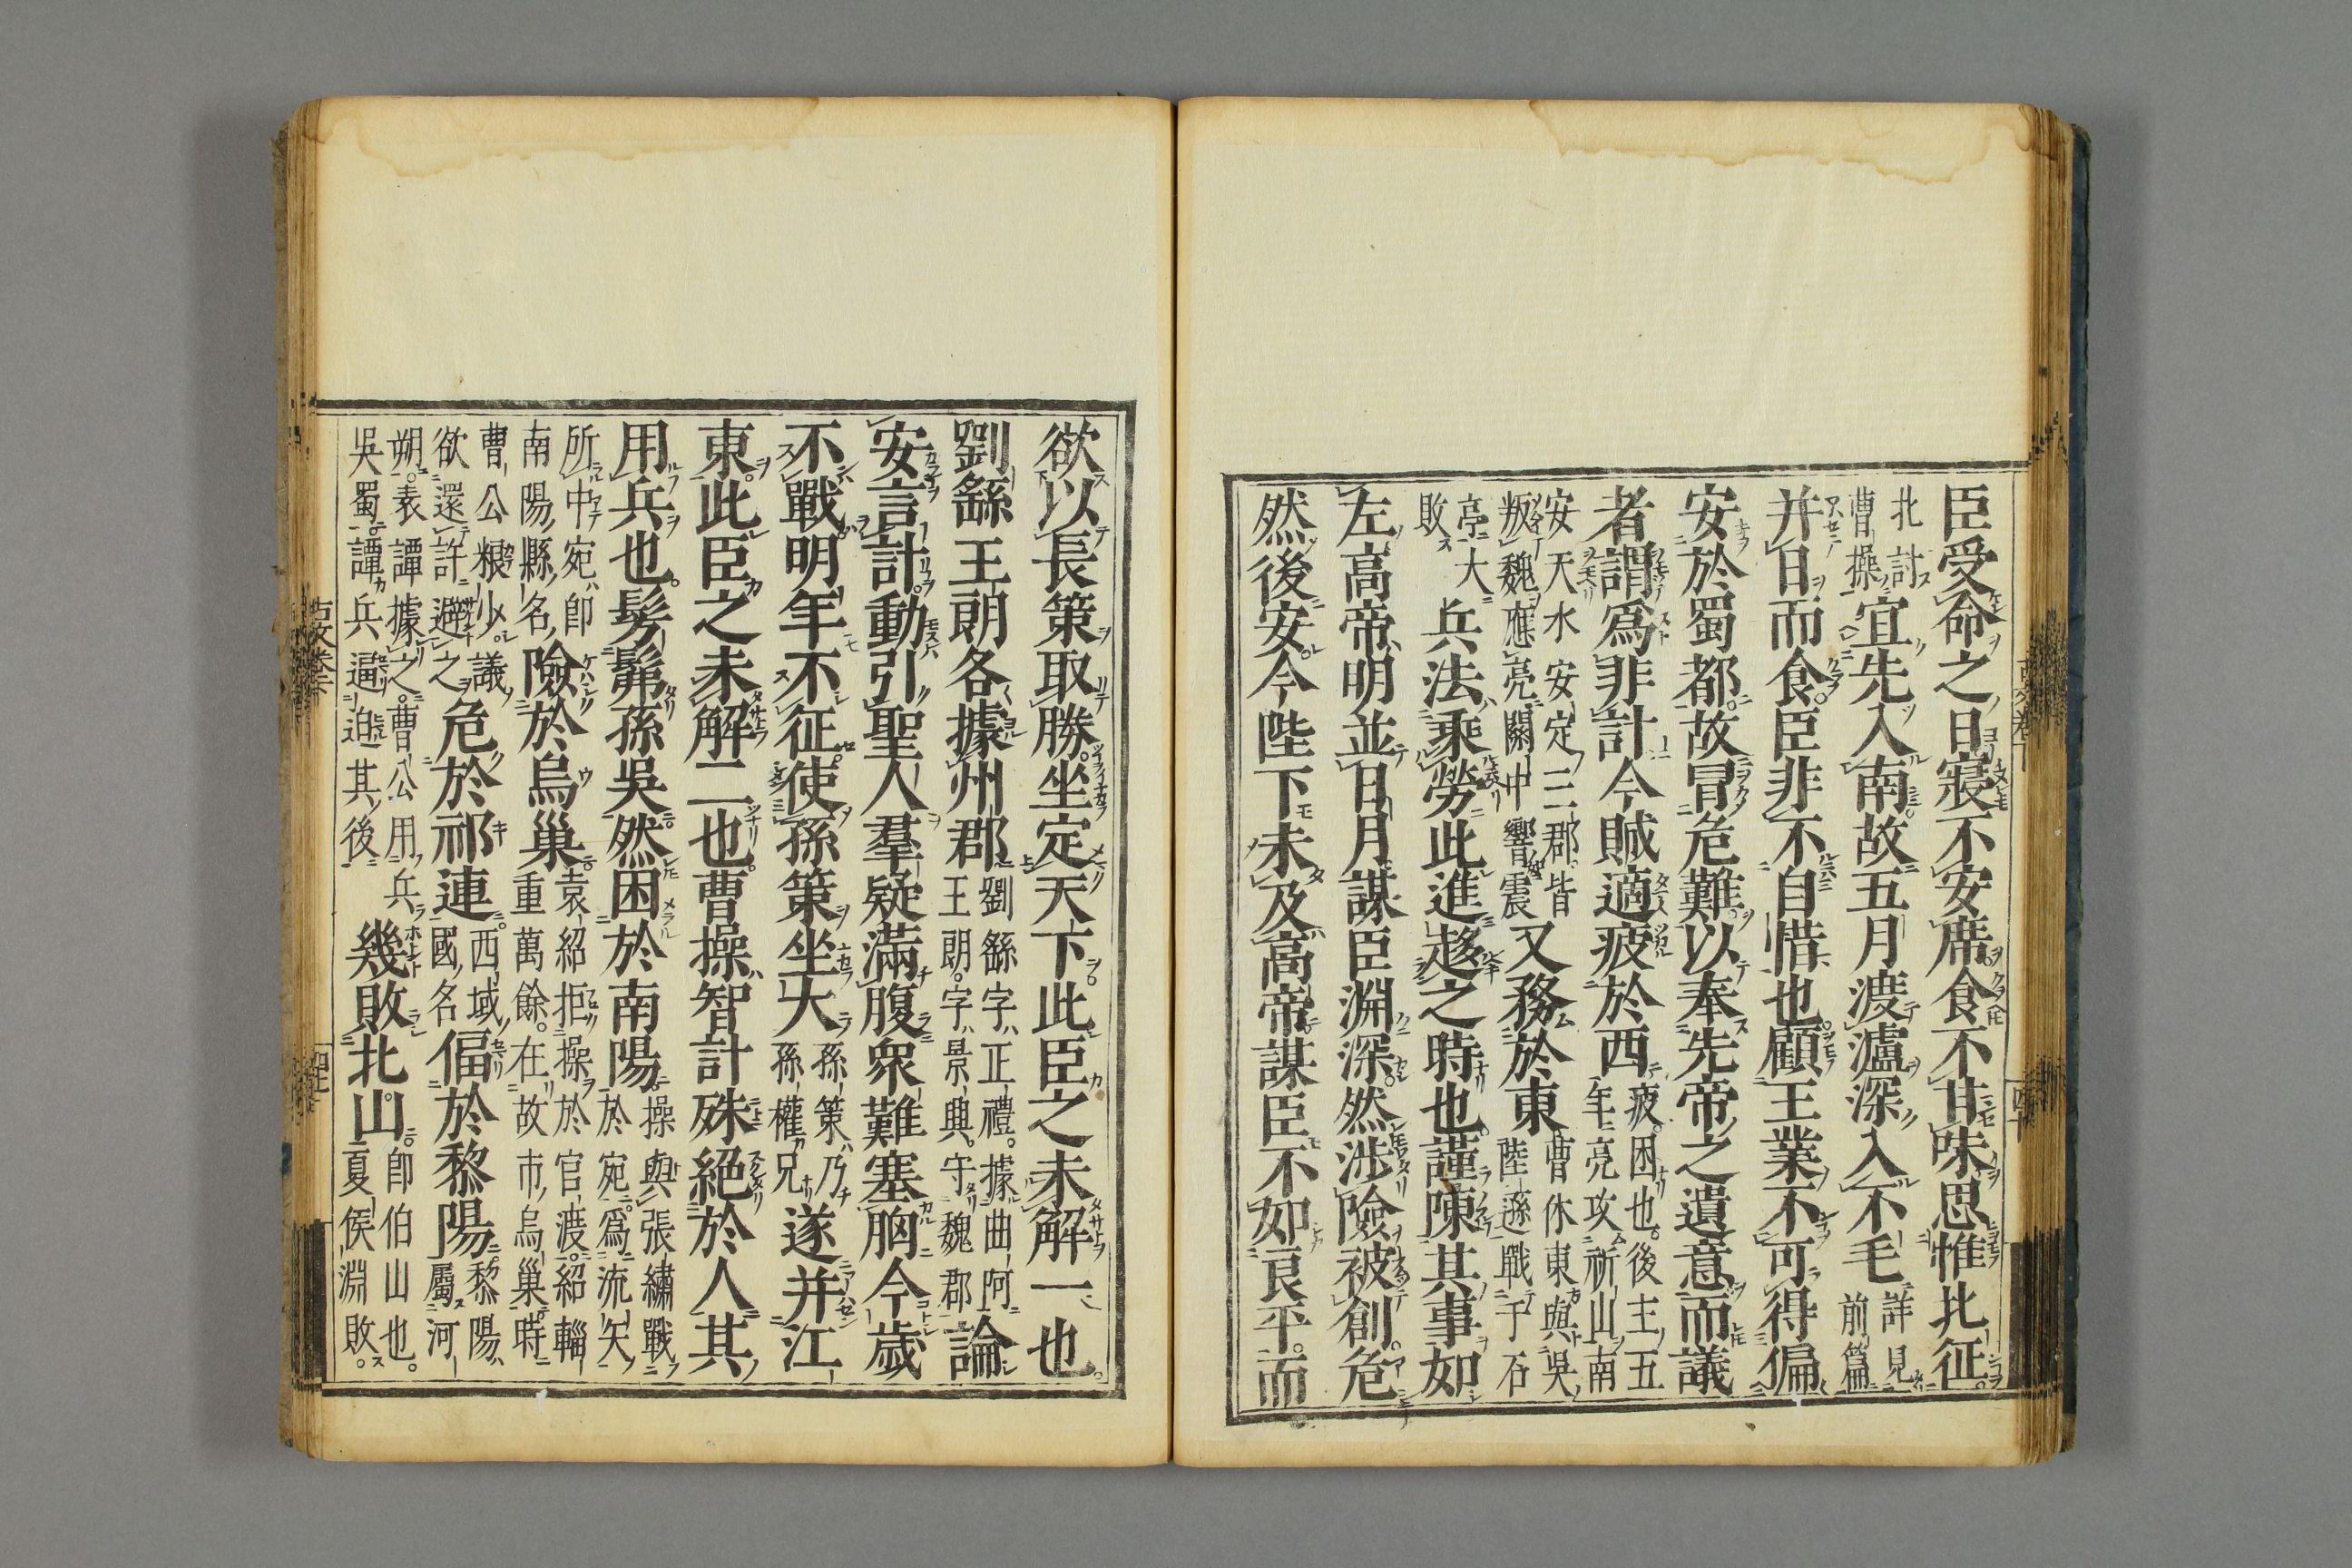 臣受命之日寢不安席食不甘味思惟北征
北討
曹操
宜先入南故五月渡瀘深入不毛
詳見
前篇
并日而食臣非不自惜也顧王業不可得偏
安於蜀都故冒危難以奉先帝之遺意而議
者謂爲非計今賊適疲於西
疲困也後主五
年亮攻祈山南
安天水安定三郡皆
叛魏應亮關中響震
又務於東
曹休東與吳
陸遜戰于石
亭大
敗
兵法乘勞此進趍之時也謹陳其事如
左高帝明並日月謀臣淵深然涉險被創危
然後安今陛下未及高帝謀臣不如良平而
欲以長策取勝坐定天下此臣之未解一也
劉繇王朗各據州郡
劉繇字正禮據曲阿
王朗字景興守魏郡
論
安言計動引聖人羣疑滿腹衆難塞胸今歲
不戰明年不征使孫策坐大
孫策乃
孫權兄
遂并江
東此臣之未解二也曹操智計殊絕於人其
用兵也髣髴孫吳然困於南陽
操與張繡戰
於宛爲流矢
所中宛卽
南陽縣名
險於烏巢
袁紹拒操於官渡紹輜
重萬餘在故市烏巢時
曹公粮少議
欲還許避之
危於祁連
西域
國名
偪於黎陽
黎陽
屬河
朔袁譚據之曹公用兵
吳蜀譚兵逼迫其後
幾敗北山
卽伯山也
夏侯淵敗